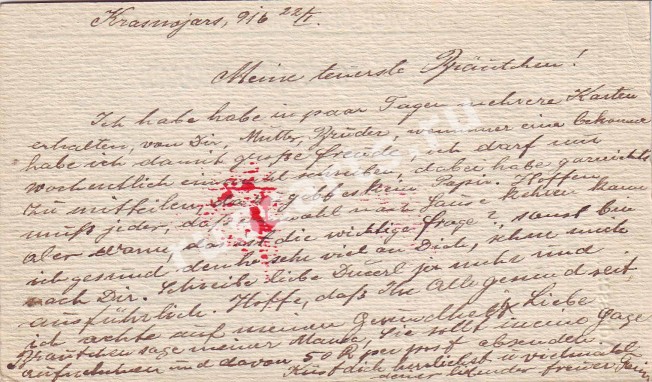 Krasnojars, 916 22/I.
Meine teuerste Bräutchen!
Ich habe habe in paar Tagen mehrere Karten
erhalten, von Dir, Mutter, Bruder, wenn immer eine bekomme
habe ich damit große Freude, ich darf nur
wochentlich schreiben, dabei habe garnichts
zu mitteilen, kein Papir. Hoffen
muß jeder, daß nach Hause kehren kann
aber wann, das ist die wichtige Frage?, sonst bin
ich gesund denke sehr viel an Dich, sehne mich
nach Dir. Schreibe liebe mir und
ausführlich. Hoffe, daß Ihr Alle gesund seit
ich achte auf meinen Gesundheit, Liebe
Bräutchen sage meiner Mama, Sie sollt meine Gage
aufnehmen und davon 50 K per post absenden.
Küst dich herzlichst u vielmals
deiner liebender treuer